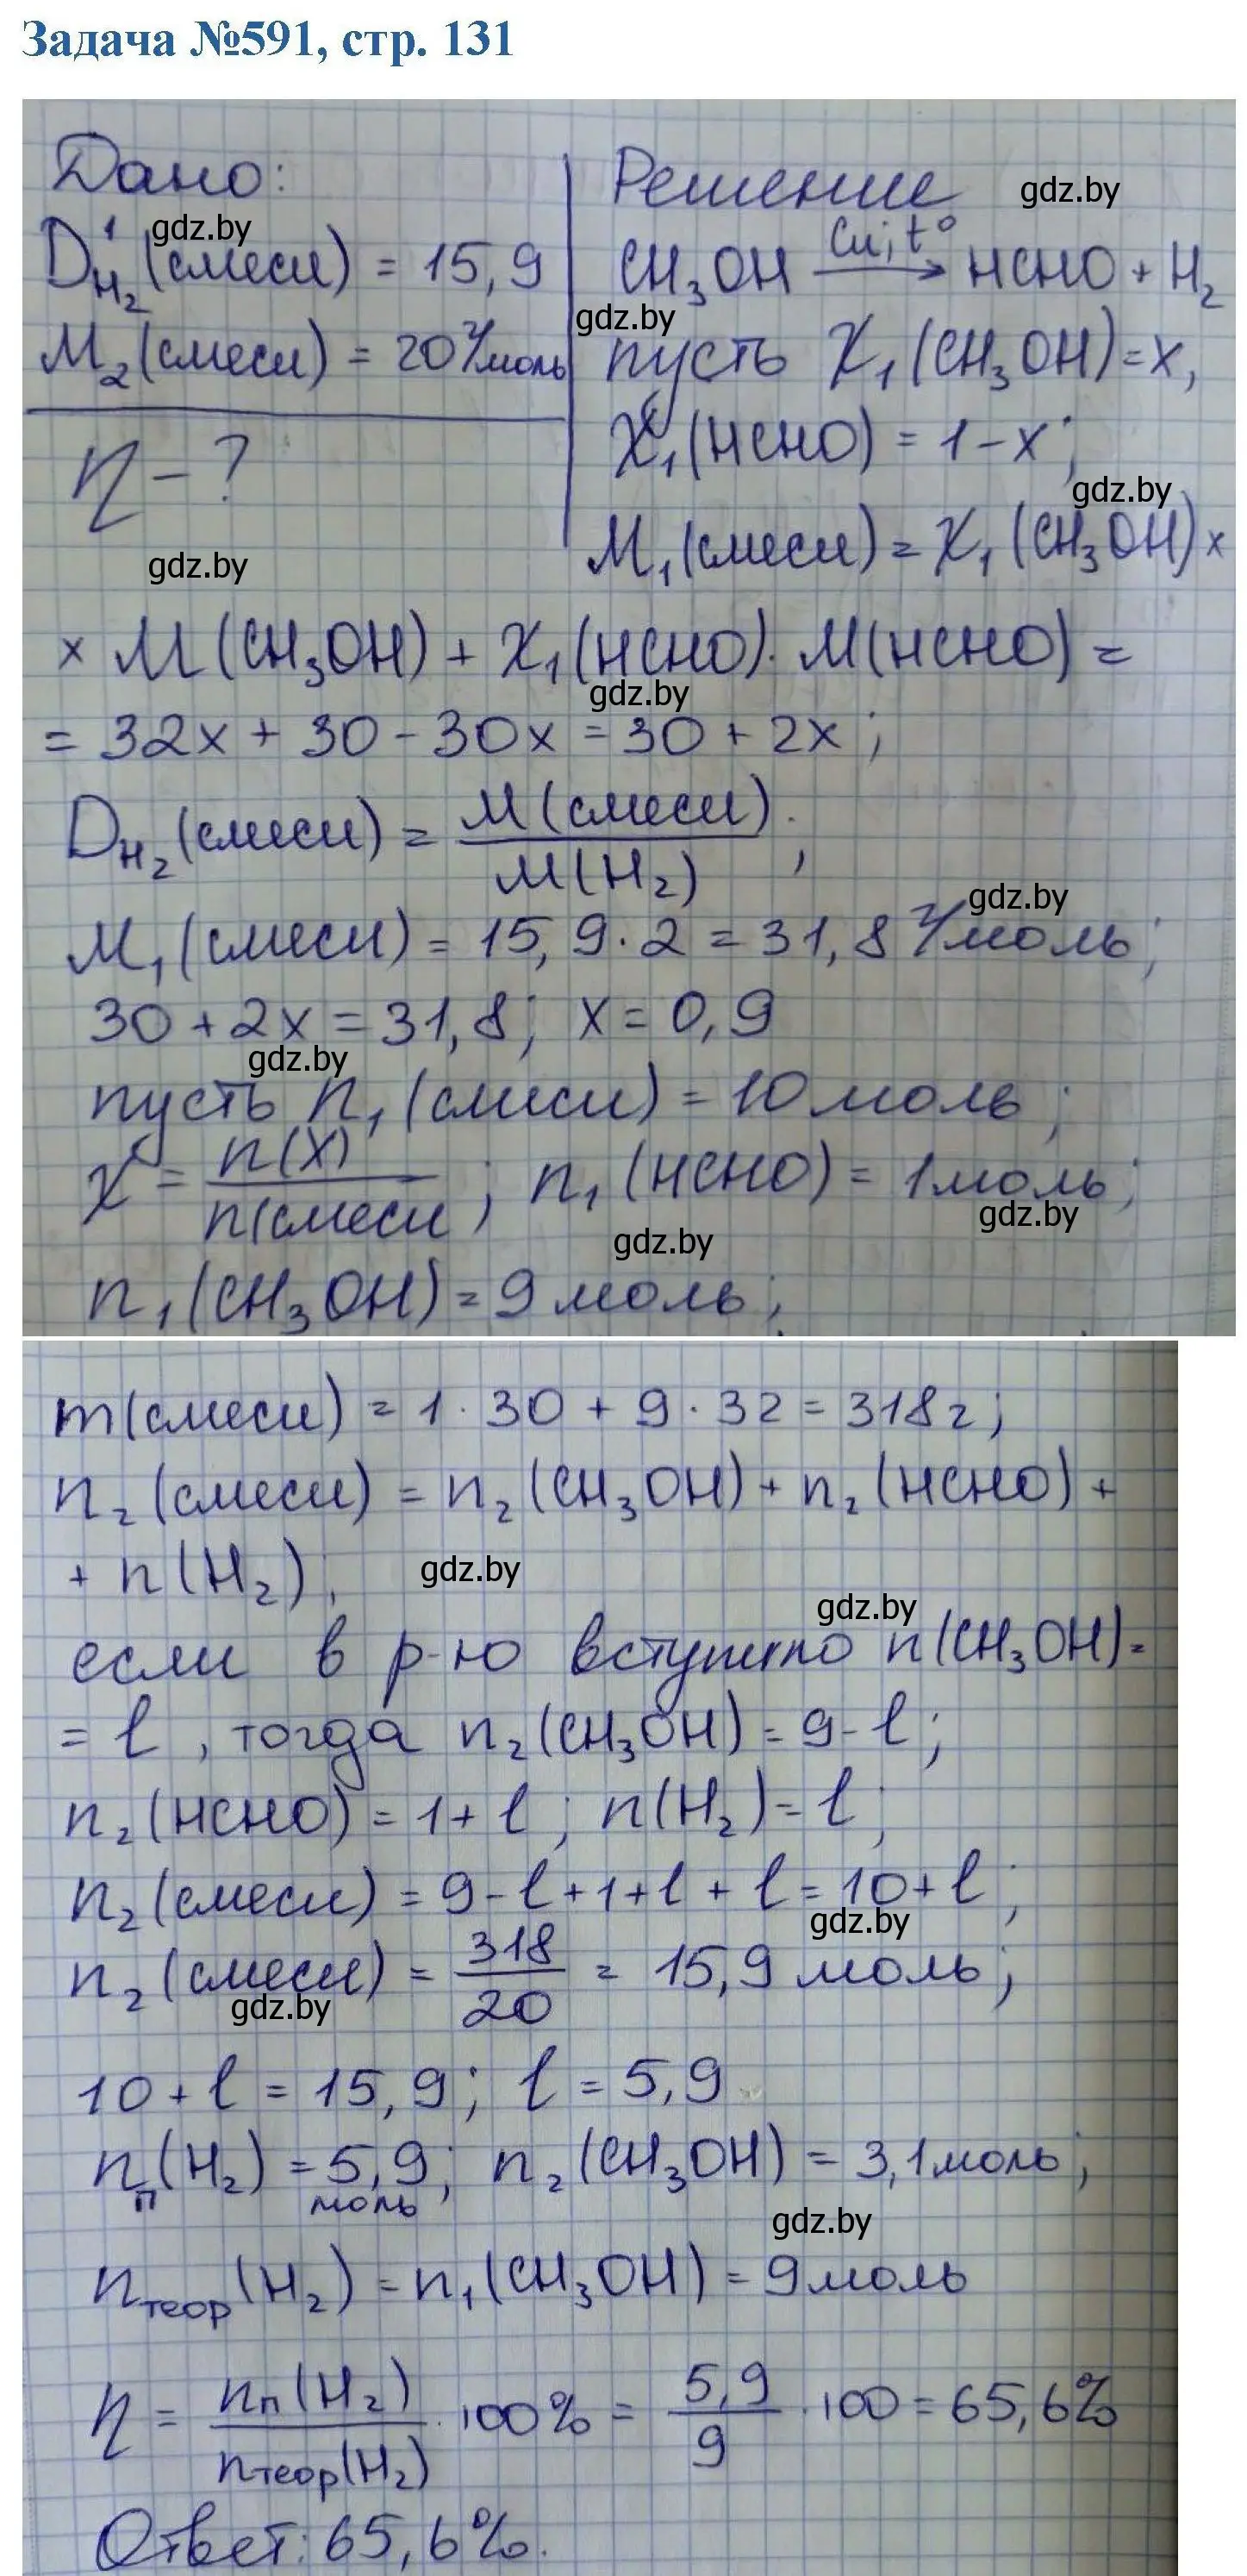 Задача №591, стр. 131
Дано:
gdz.by
D¹H₂(смеси) = 15,9
M₂(смеси) = 20 г/моль
η - ?
gdz.by
Решение
gdz.by
CH₃OH Cu, t° → HCHO + H₂
gdz.by
пусть X₁(CH₃OH) = x,
X₁(HCHO) = 1 - x;
gdz.by
M₁(смеси) = X₁(CH₃OH) ×
× M(CH₃OH) + X₁(HCHO) · M(HCHO) =
gdz.by
= 32x + 30 - 30x = 30 + 2x;
DH₂(смеси) = M(смеси) / M(H₂);
gdz.by
M₁(смеси) = 15,9 · 2 = 31,8 г/моль;
30 + 2x = 31,8; x = 0,9
gdz.by
пусть n₁(смеси) = 10 моль;
X = n(X) / n(смеси; n₁(HCHO) = 1 моль;
gdz.by
gdz.by
n₁(CH₃OH) = 9 моль;
m(смеси) = 1 · 30 + 9 · 32 = 318 г;
n₂(смеси) = n₂(CH₃OH) + n₂(HCHO) +
+ n(H₂);
gdz.by
gdz.by
если в р-ю вступило n(CH₃OH) =
= l, тогда n₂(CH₃OH) = 9 - l;
n₂(HCHO) = 1 + l; n(H₂) = l;
n₂(смеси) = 9 - l + 1 + l + l = 10 + l;
gdz.by
n₂(смеси) = 318 / 20 = 15,9 моль;
gdz.by
10 + l = 15,9; l = 5,9
nп(H₂) = 5,9 моль; n₂(CH₃OH) = 3,1 моль;
gdz.by
nтеор(H₂) = n₁(CH₃OH) = 9 моль
η = nп(H₂) / nтеор(H₂) · 100% = 5,9 / 9 · 100 = 65,6%
Ответ: 65,6%.